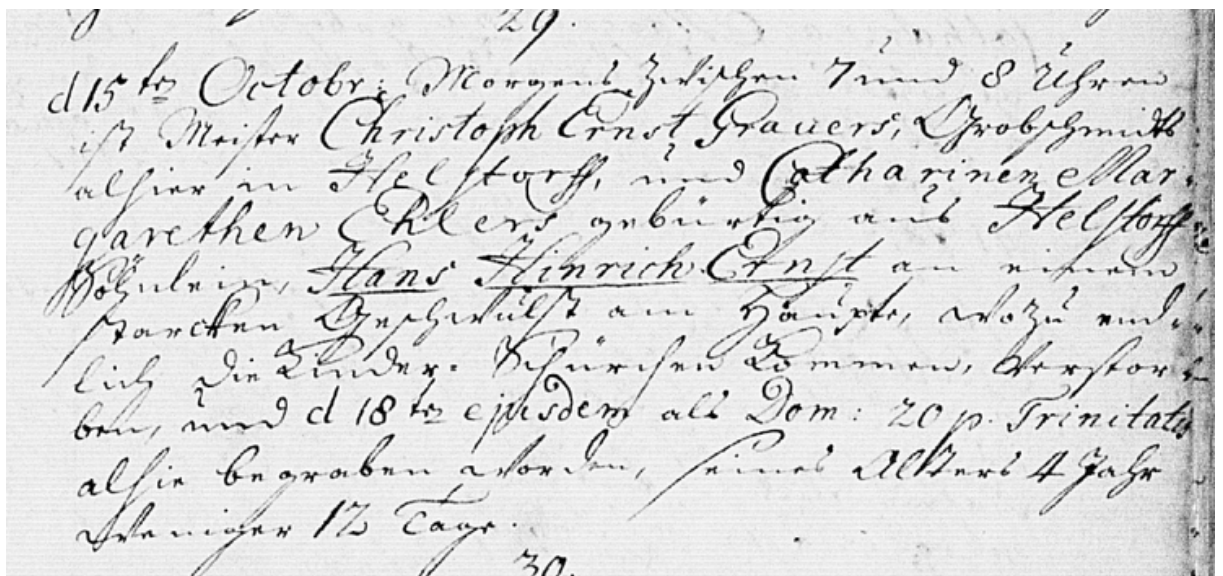 29.
d 15ten Octobr: Morgens zwischen 7 und 8 Uhren
ist Meister Christoph Ernst Grauers, Grobschmidts
alhier in Helstorff, und Catharinen Mar-
garethen Ehlers gebürtig aus Helstorff
Söhnlein, Hans Hinrich Ernst an einem
starcken Geschwulst am Haupte, wozu end-
lich die Kinder-Schürchen kommen, verstor-
ben, und d 18ten ejusdem als Dom: 20 p. Trinitatis
alhie begraben worden, seines Alters 4 Jahr
weniger 12 Tage.
30.